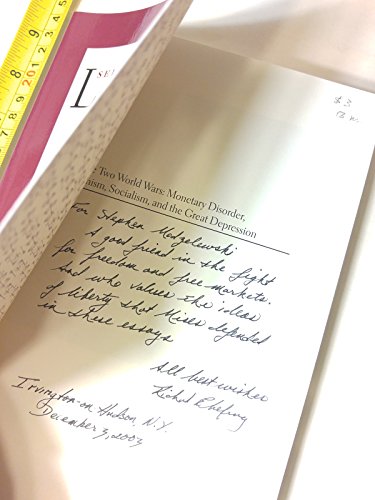 SE
L
9
8
20
$3
: Two World Wars: Monetary Disorder,
nism, Socialism, and the Great Depression
For Stephen
A good friend in the fight
for freedom and free markets.
And who values the ideas
of liberty that Mises defended
in these essays
All best wishes
Richard
Irvington-on Hudson, N.Y.
December 3, 2003